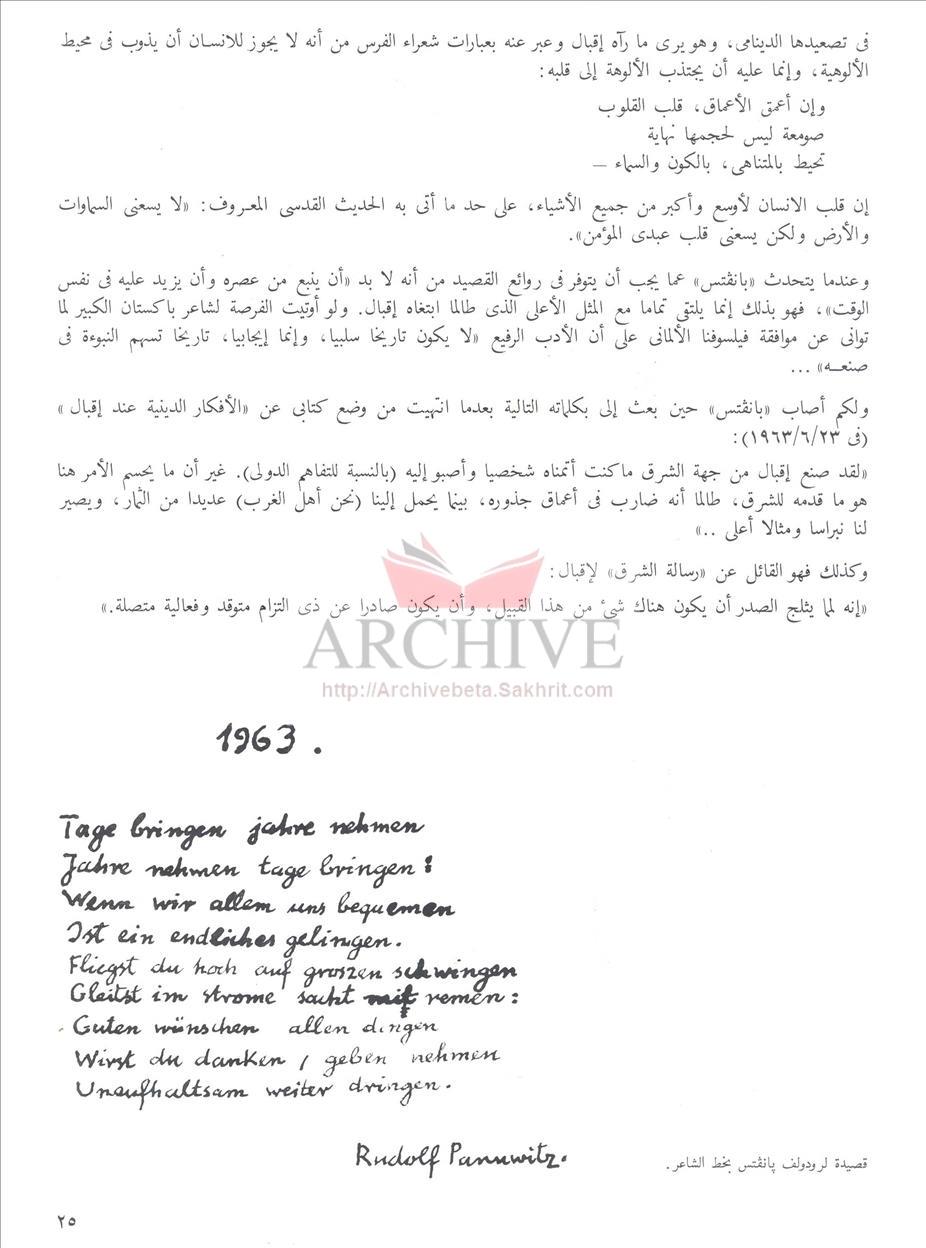 فى تصعيدها الدينامى، وهو يرى ما رآه إقبال وعبر عنه بعبارات شعراء الفرس من أنه لا يجوز للانسان أن يذوب فى محيط
الألوهية، وإنما عليه أن يجتذب الألوهة إلى قلبه:
وإن أعمق الأعماق، قلب القلوب
صومعة ليس لحجمها نهاية
تحيط بالمتناهى، بالكون والسماء –
إن قلب الانسان لأوسع وأكبر من جميع الأشياء، على حد ما أتى به الحديث القدسى المعروف: «لا يسعنى السماوات
والأرض ولكن يسعنى قلب عبدى المؤمن».
وعندما يتحدث «بانڤتس» عما يجب أن يتوفر فى روائع القصيد من أنه لا بد «أن ينبع من عصره وأن يزيد عليه فى نفس
الوقت»، فهو بذلك إنما يلتقى تماما مع المثل الأعلى الذى طالما ابتغاه إقبال. ولو أوتيت الفرصة لشاعر باكستان الكبير لما
توانى عن موافقة فيلسوفنا الألمانى على أن الأدب الرفيع «لا يكون تاريخا سلبيا، وإنما إيجابيا، تاريخا تسهم النبوءة فى
صنعه» ...
ولكم أصاب «بانڤتس» حين بعث إلى بكلماته التالية بعدما انتهيت من وضع كتابى عن «الأفكار الدينية عند إقبال»
(فى ١٩٦٣/٦/٢٣):
«لقد صنع إقبال من جهة الشرق ما كنت أتمناه شخصيا وأصبو إليه (بالنسبة للتفاهم الدولى). غير أن ما يحسم الأمر هنا
هو ما قدمه للشرق، طالما أنه ضارب فى أعماق جذوره، بينما يحمل إلينا (نحن أهل الغرب) عديدا من الثمار، ويصير
لنا نبراسا ومثالا أعلى ..»
وكذلك فهو القائل عن «رسالة الشرق» لإقبال:
«إنه لما يثلج الصدر أن يكون هناك شئ من هذا القبيل، وأن يكون صادرا عن ذى التزام متوقد وفعالية متصلة.»
ARCHIVE
http://Archivebeta.Sakhrit.com
1963.
Tage bringen jahre nehmen
Jahre nehmen tage bringen:
Wenn wir allem uns bequemen
Ist ein endliches gelingen.
Fliegst du hoch auf groszen schwingen
Gleitst im strome sacht mit remen:
Guten wünschen allen dingen
Wirst du danken / geben nehmen
Unaufhaltsam weiter dringen.
Rudolf Pannwitz.
قصيدة لرودولف پانڤتس بخط الشاعر.
٢٥